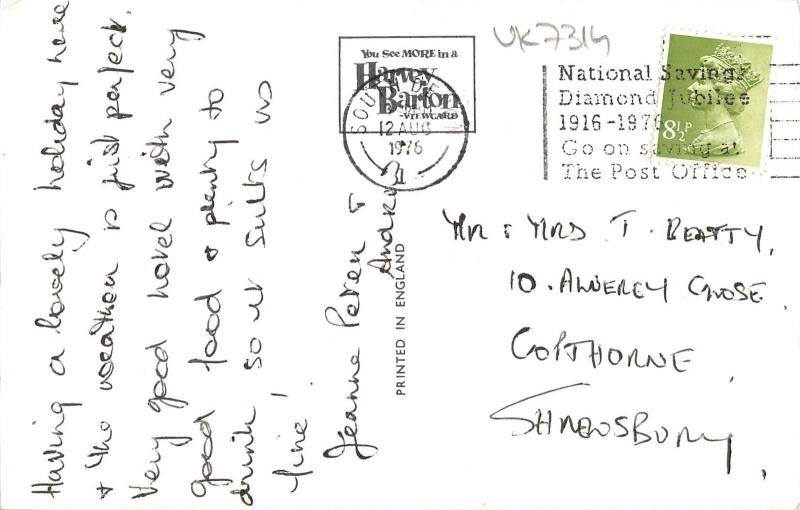 Having a lovely holiday here
+ the weather is just perfect.
Very good hotel with very
good food + plenty to
drink so it suits us
fine!
Jeanne Peter +
Andrew
You See MORE in a
Harvey
Barton
-VIEWCARD
12 AUG
1976
UK7314
National Savings
Diamond Jubilee
1916-1976
Go on saving at
The Post Office
8½P
PRINTED IN ENGLAND
MR & MRS T. BEATTY,
10. ALVERLEY CLOSE,
COPTHORNE,
SHREWSBURY,